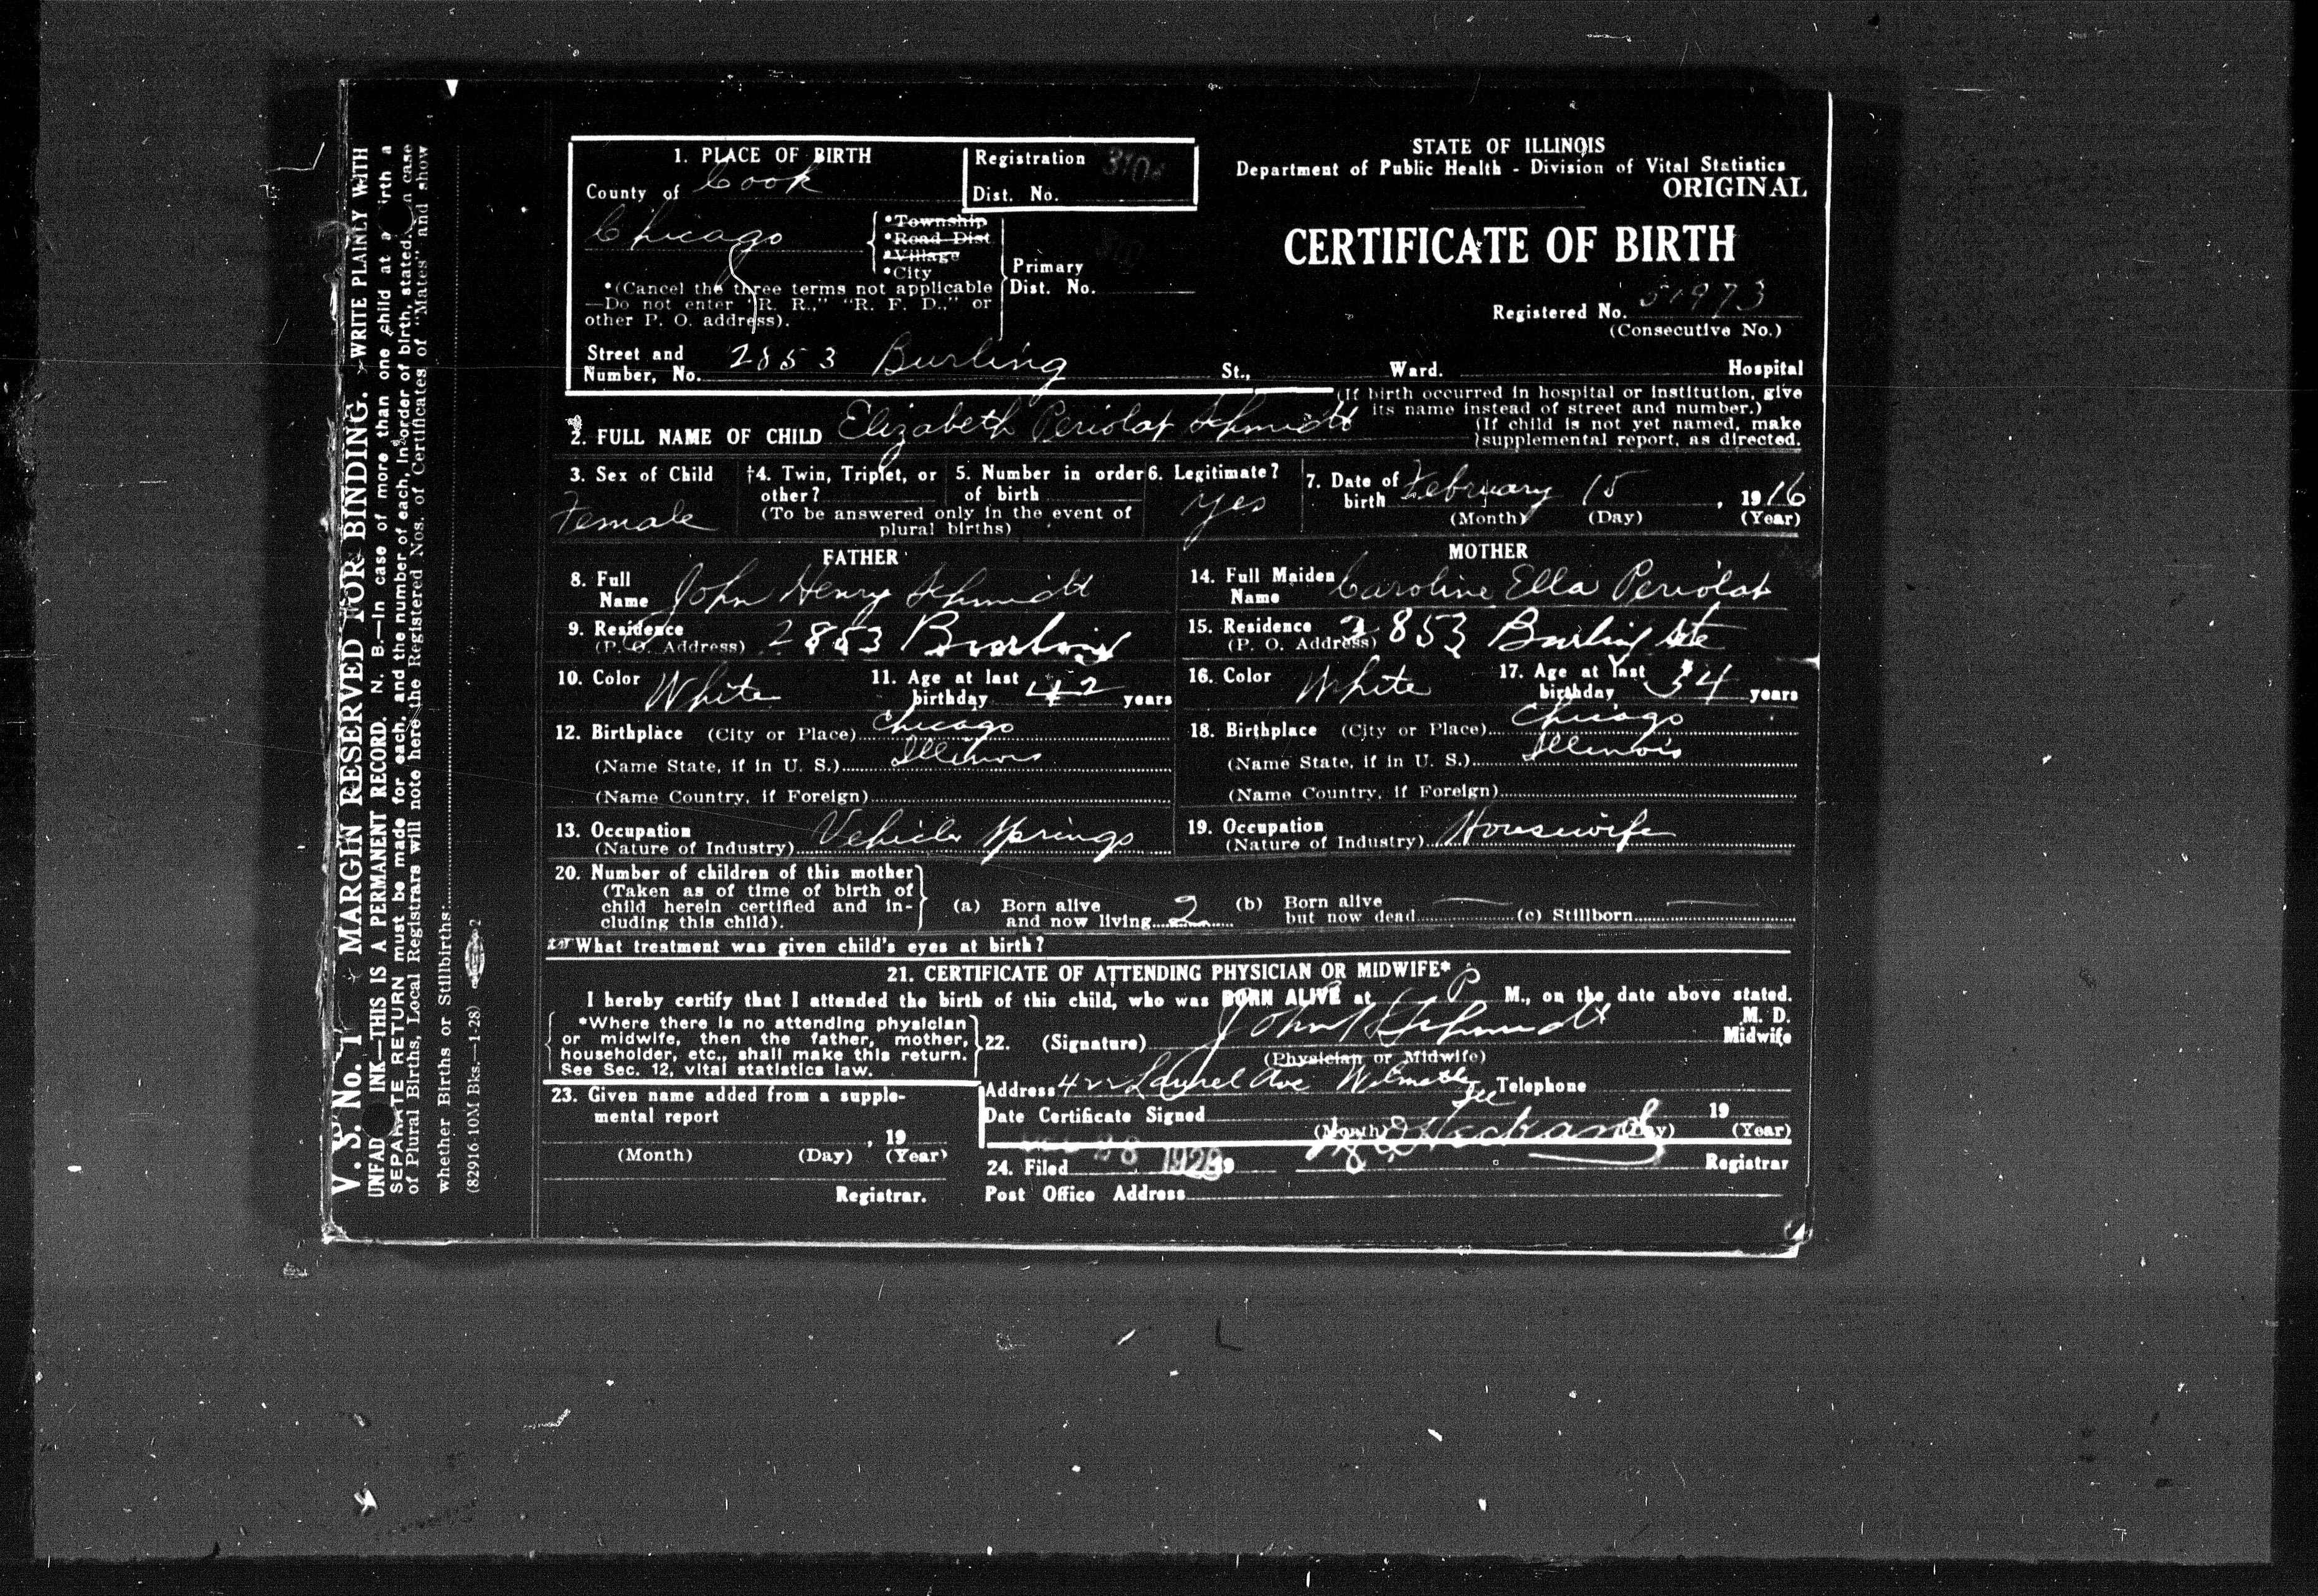 V. S. No. 1 MARGIN RESERVED FOR BINDING. WRITE PLAINLY WITH
UNFADING INK—THIS IS A PERMANENT RECORD. N. B.—In case of more than one child at a birth a
SEPARATE RETURN must be made for each, and the number of each, in order of birth, stated. In case
of Plural Births, Local Registrars will note here the Registered Nos. of Certificates of "Mates" and show
whether Births or Stillbirths:
(82916 10M Bks.—1-28) 2
STATE OF ILLINOIS
Department of Public Health - Division of Vital Statistics
ORIGINAL
CERTIFICATE OF BIRTH
Registered No. 51973
(Consecutive No.)
1. PLACE OF BIRTH
County of Cook
Registration
Dist. No.
Chicago
*Township
*Road Dist.
*Village
*City
Primary
Dist. No.
*(Cancel the three terms not applicable
—Do not enter "R. R.," "R. F. D.," or
other P. O. address).
Street and
Number, No. 2853 Burling St., Ward. Hospital
(If birth occurred in hospital or institution, give
its name instead of street and number.)
2. FULL NAME OF CHILD Elizabeth Periolat Schmidt
(If child is not yet named, make
supplemental report, as directed.
3. Sex of Child
Female
†4. Twin, Triplet, or
other?
5. Number in order
of birth
(To be answered only in the event of
plural births)
6. Legitimate?
Yes
7. Date of
birth February 15, 1916
(Month) (Day) (Year)
FATHER
8. Full
Name John Henry Schmidt
9. Residence
(P. O. Address) 2853 Burling
10. Color White
11. Age at last
birthday 42 years
12. Birthplace (City or Place) Chicago
(Name State, if in U. S.) Illinois
(Name Country, if Foreign)
13. Occupation
(Nature of Industry) Vehicle Springs
MOTHER
14. Full Maiden
Name Caroline Ella Periolat
15. Residence
(P. O. Address) 2853 Burling Ste
16. Color White
17. Age at last
birthday 34 years
18. Birthplace (City or Place) Chicago
(Name State, if in U. S.) Illinois
(Name Country, if Foreign)
19. Occupation
(Nature of Industry) Housewife
20. Number of children of this mother
(Taken as of time of birth of
child herein certified and in-
cluding this child).
(a) Born alive
and now living 2
(b) Born alive
but now dead —
(c) Stillborn —
What treatment was given child's eyes at birth?
21. CERTIFICATE OF ATTENDING PHYSICIAN OR MIDWIFE*
I hereby certify that I attended the birth of this child, who was BORN ALIVE at P M., on the date above stated.
*Where there is no attending physician
or midwife, then the father, mother,
householder, etc., shall make this return.
See Sec. 12, vital statistics law.
22. (Signature) John H Schmidt
M. D.
Midwife
(Physician or Midwife)
Address 422 Laurel Ave Wilmette Ill Telephone
Date Certificate Signed 19
(Month) (Day) (Year)
23. Given name added from a supple-
mental report
, 19
(Month) (Day) (Year)
Registrar.
24. Filed 28 1929 19
Registrar
Post Office Address